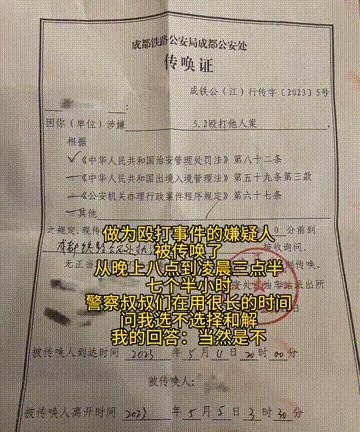 成都铁路公安局成都公安处
传唤证
成铁公（江）行传字〔2023〕5号
因你（单位）涉嫌 5.2殴打他人案
根据
✓《中华人民共和国治安管理处罚法》第八十二条
《中华人民共和国出境入境管理法》第五十九条第三款
《公安机关办理行政案件程序规定》第六十七条
其他
之规定,现传
分前到
接受询问。
无正当
做为殴打事件的嫌疑人
被传唤了
从晚上八点到凌晨三点半
七个半小时
警察叔叔们在用很长的时间
问我选不选择和解
我的回答：当然是不
油车站派出所
被传唤人到达时间 2023 年 5 月 4 日 20 时 00 分
被传唤人:
被传唤人离开时间 2023 年 5 月 5 日 3 时 30 分